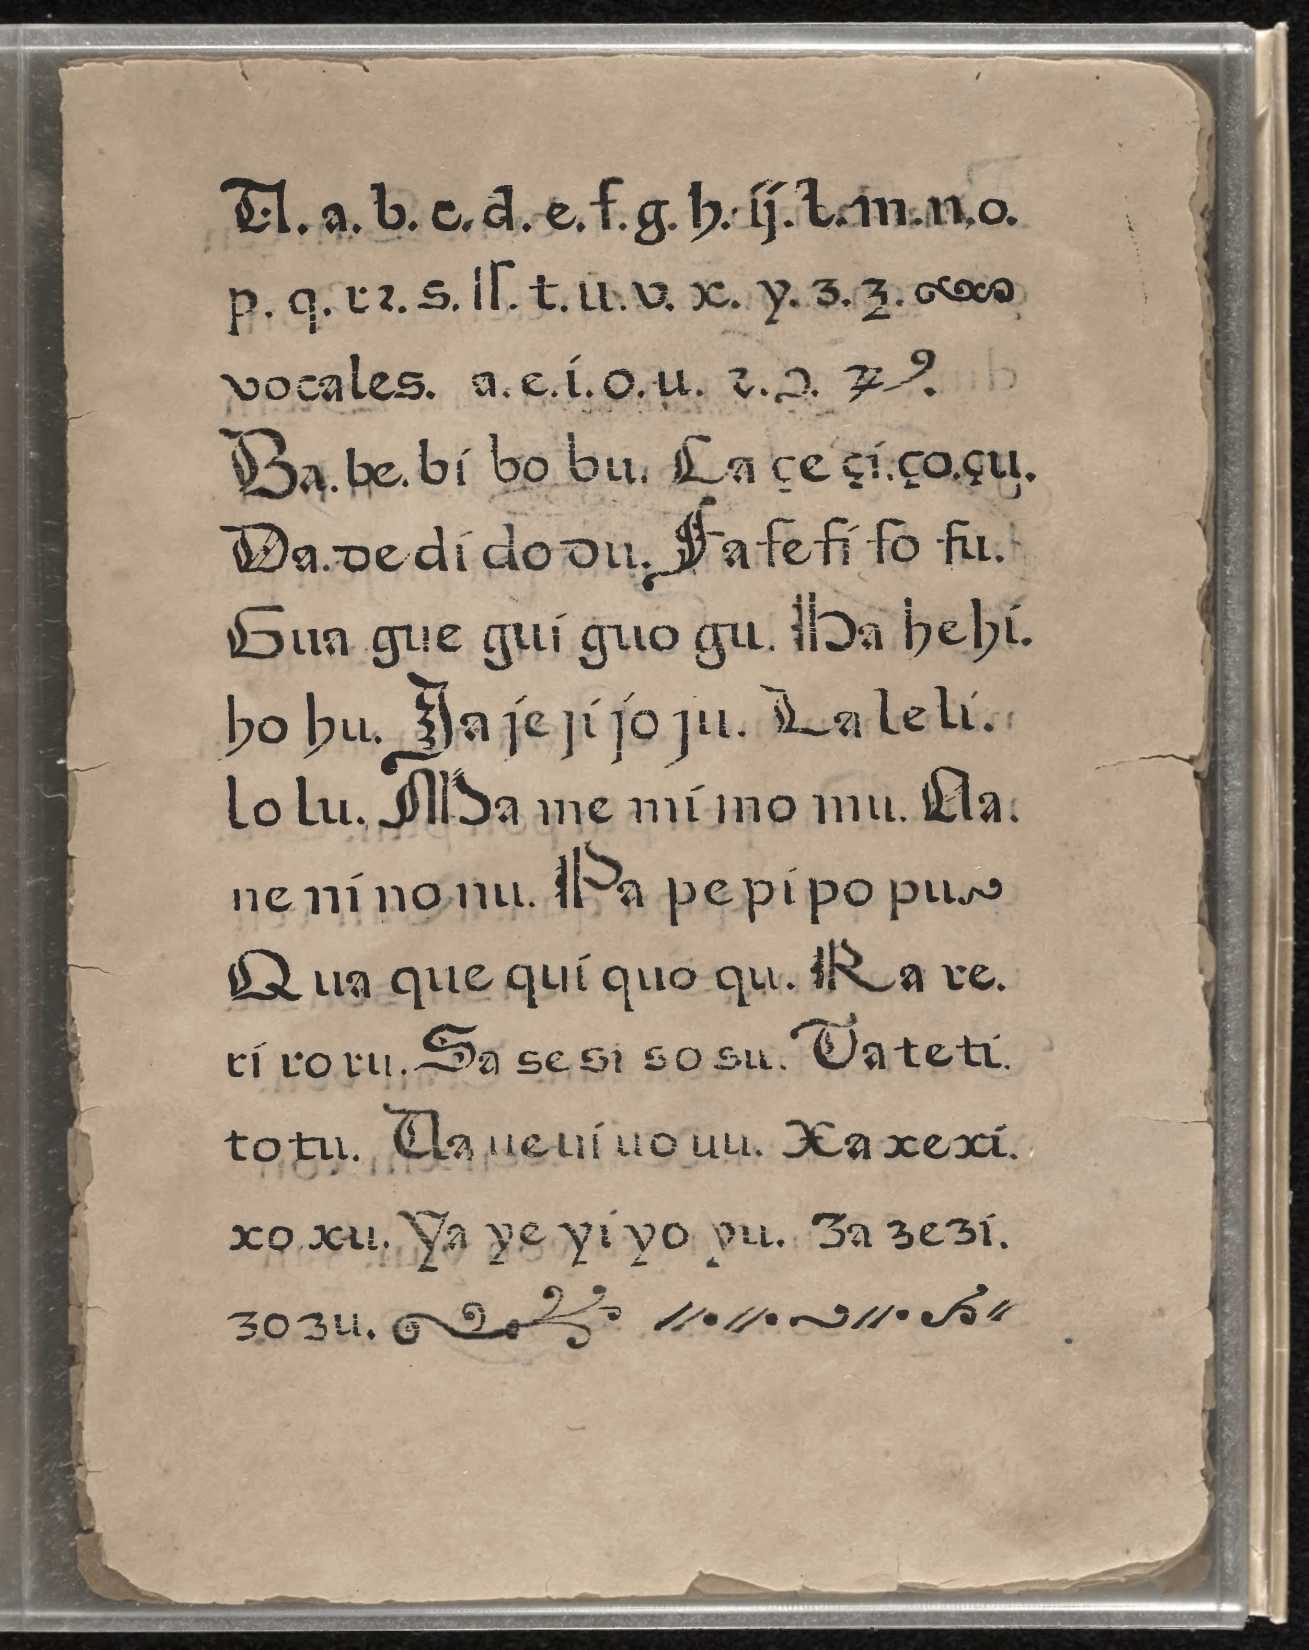 A. a. b. c. d. e. f. g. h. ij. l. m. n. o.
p. q. r ꝛ. s. ſſ. t. u. v. x. y. ȝ. ʒ.
vocales. a. e. i. o. u. ꝛ. ꝯ.
Ba. be. bi bo bu. Ca çe çi. ço. çu.
Da. de di do du. Fa fe fi fo fu.
Gua gue gui guo gu. Ha he hi.
ho hu. Ja je ji jo ju. La le li.
lo lu. Ma me mi mo mu. Na.
ne ni no nu. Pa pe pi po pu
Qua que qui quo qu. Ra re.
ri ro ru. Sa se si so su. Ta te ti.
to tu. Ua ue ui uo uu. Xa xe xi.
xo xu. Ya ye yi yo yu. Za ze zi.
zo zu.